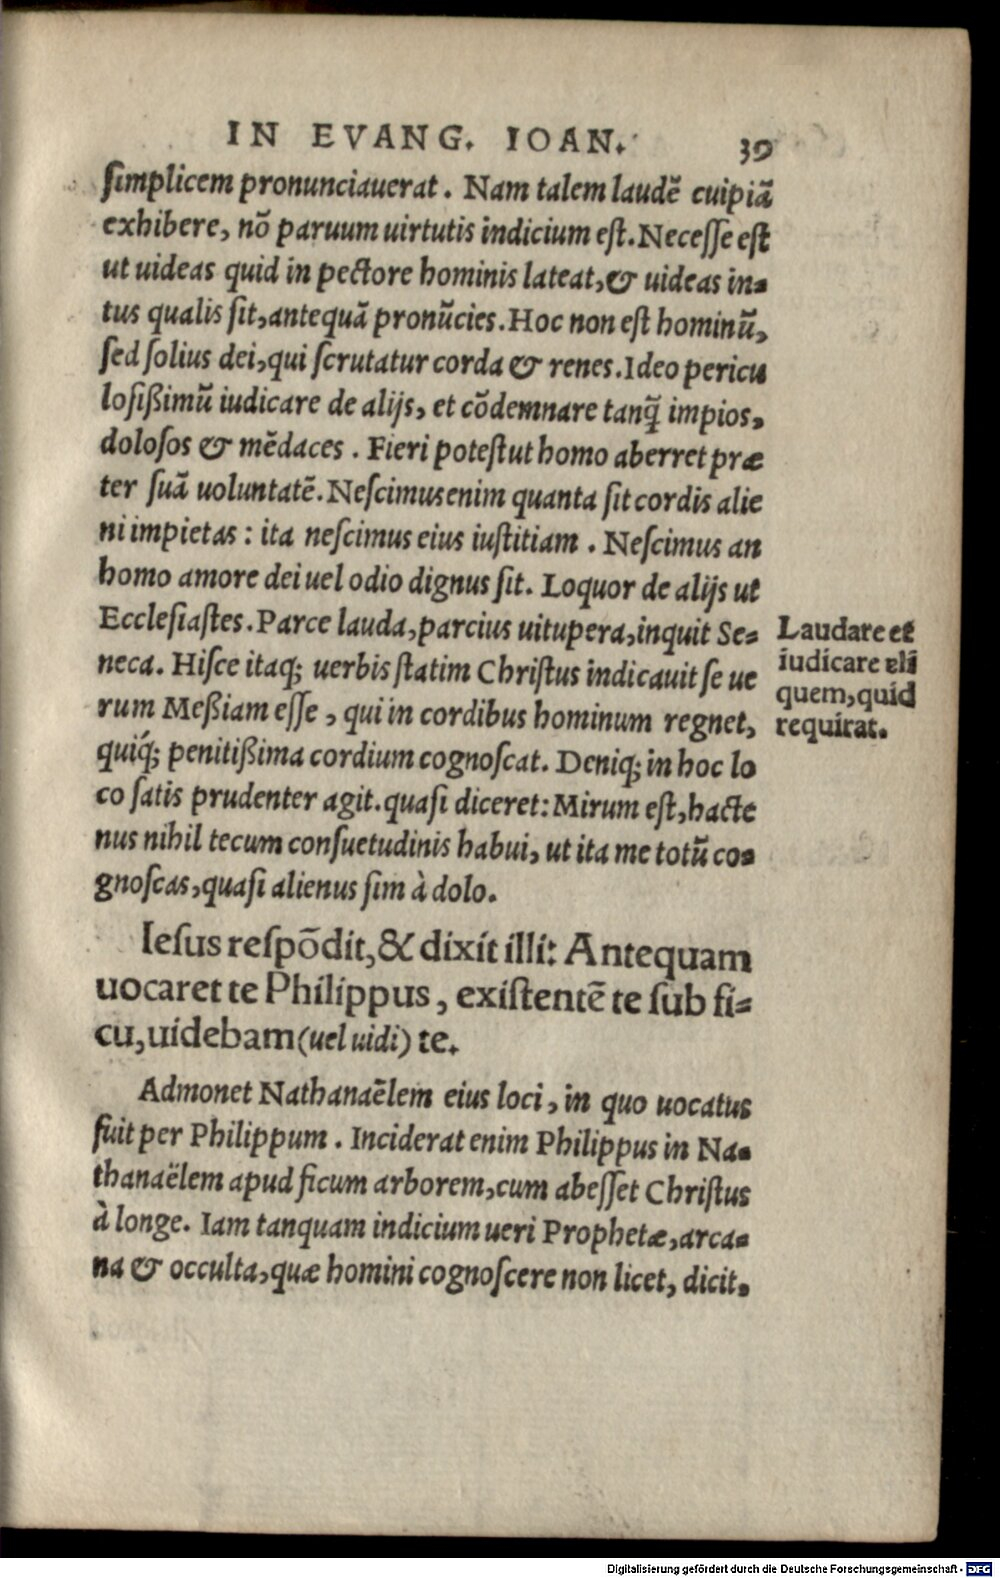 IN EVANG. IOAN. 39
simplicem pronunciauerat. Nam talem laudē cuipiā
exhibere, nō paruum uirtutis indicium est. Necesse est
ut uideas quid in pectore hominis lateat, & uideas in=
tus qualis sit, antequā pronūcies. Hoc non est hominū,
sed solius dei, qui scrutatur corda & renes. Ideo pericu
losißimū iudicare de alijs, et cōdemnare tanq̄ impios,
dolosos & mēdaces. Fieri potest ut homo aberret præ
ter suā uoluntatē. Nescimus enim quanta sit cordis alie
ni impietas: ita nescimus eius iustitiam. Nescimus an
homo amore dei uel odio dignus sit. Loquor de alijs ut
Ecclesiastes. Parce lauda, parcius uitupera, inquit Se=
neca. Hisce itaq; uerbis statim Christus indicauit se ue
rum Meßiam esse, qui in cordibus hominum regnet,
quiq́; penitißima cordium cognoscat. Deniq; in hoc lo
co satis prudenter agit. quasi diceret: Mirum est, hacte
nus nihil tecum consuetudinis habui, ut ita me totū co=
gnoscas, quasi alienus sim à dolo.
Laudare et
iudicare ali
quem, quid
requirat.
Iesus respōdit, & dixit illi: Antequam
uocaret te Philippus, existentē te sub fi=
cu, uidebam (uel uidi) te.
Admonet Nathanaēlem eius loci, in quo uocatus
fuit per Philippum. Inciderat enim Philippus in Na=
thanaëlem apud ficum arborem, cum abesset Christus
à longe. Iam tanquam indicium ueri Prophetæ, arca=
na & occulta, quæ homini cognoscere non licet, dicit.
Digitalisierung gefördert durch die Deutsche Forschungsgemeinschaft - DFG